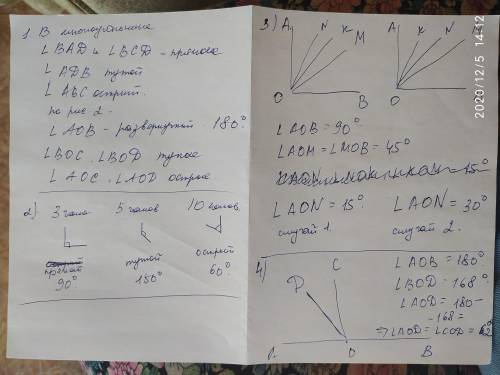 1. В многоугольнике
∠BAD и ∠BCD – прямые
∠ADB тупой
∠ABC острый.
по рис 2.
∠AOB – развернутый 180°.
∠BOC, ∠BOD тупые
∠AOC, ∠AOD острые
2) 3 часа 5 часов 10 часов
прямой тупой острой
90° 150° 60°
3) A N K M
O B
A K N M
O
∠AOB = 90°
∠AOM = ∠MOB = 45°
∠AON = 15° ∠AON = 30°
случай 1. случай 2.
4) C
D
O B
∠AOB = 180°
∠BOD = 168°
∠AOD = 180 –
– 168 =
⇒ ∠AOD = ∠COD =
2020/12/5 14:12